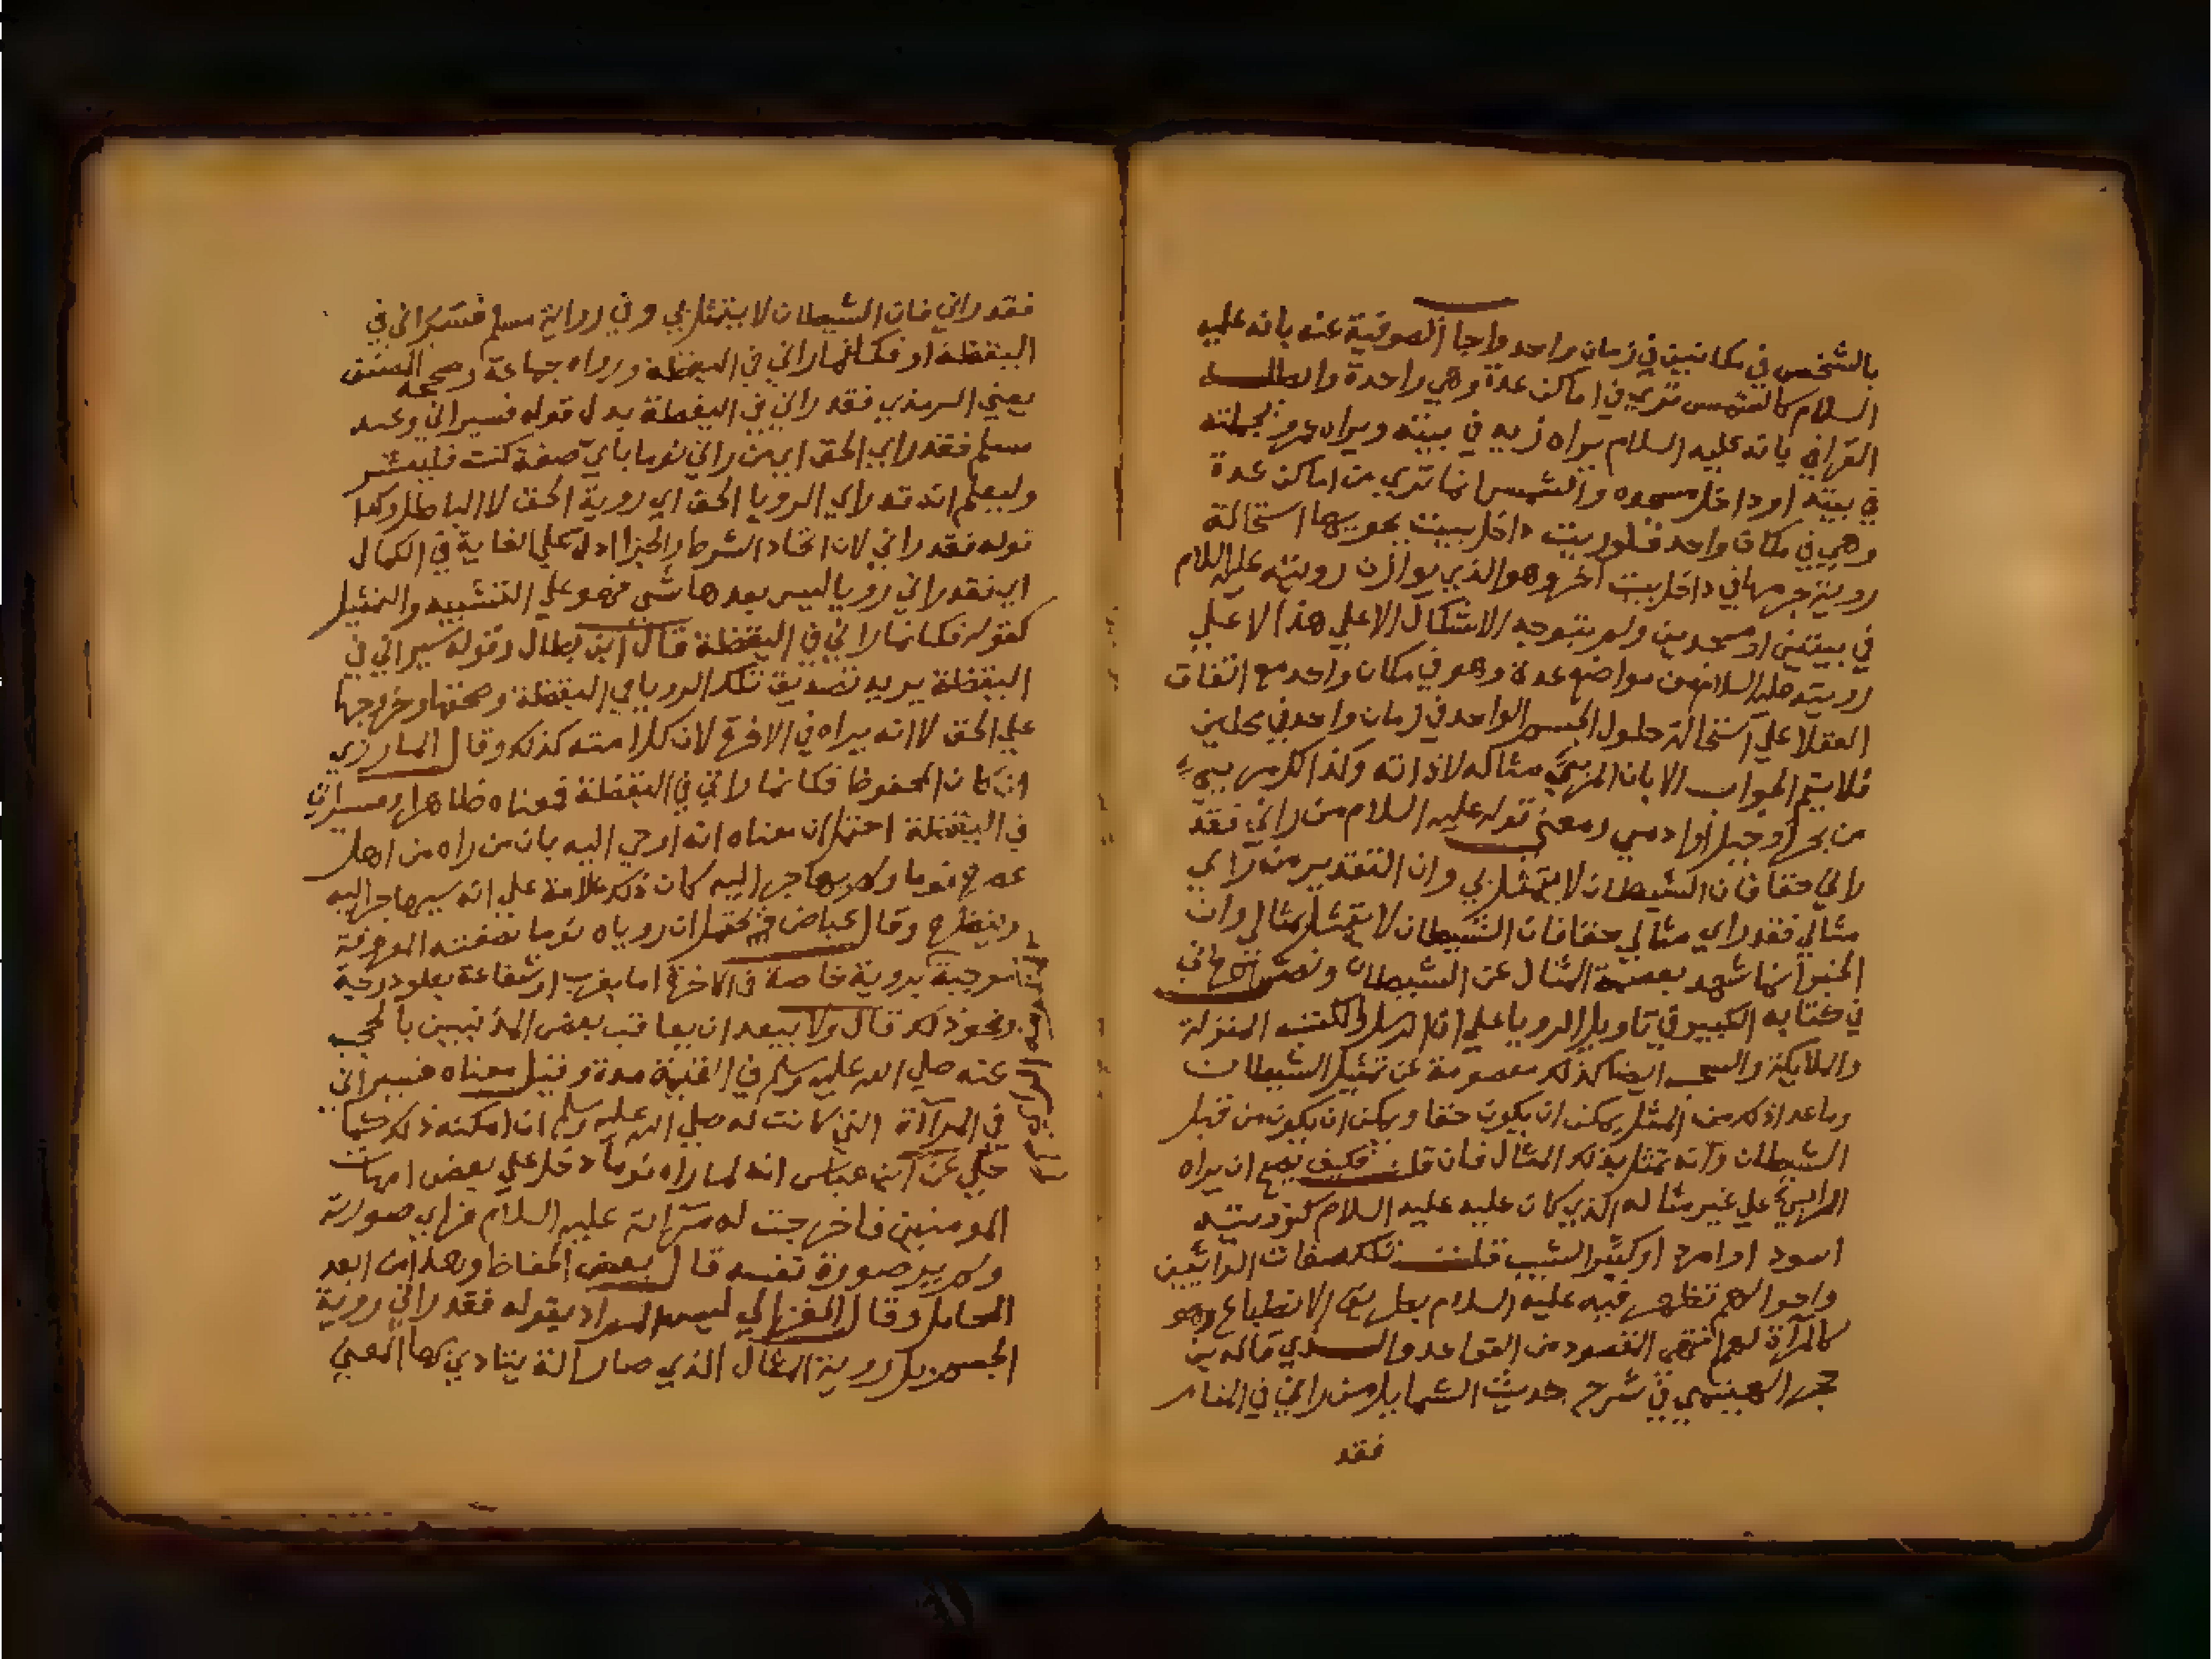 بالشخص في مكانين في زمان واحد واجاب الصوفية عنه بانه عليه
السلام كالشمس تري في اماكن عدة وهي واحدة وابطله
القرافي بانه عليه السلام يراه زيد في بيته ويراه عمرو بجملته
في بيته او داخل مسجده والشمس انما تري من اماكن عدة
وهي في مكان واحد فلو ريت داخل بيت بجرمها استحالة
روية جرمها في داخل بيت آخر وهو الذي يوازن رويته عليه السلام
في بيتين او مسجدين ولم يتوجه الاشكال الا علي هذا لا علي
رويته عليه السلام من مواضع عدة وهو في مكان واحد مع اتفاق
العقلا علي استحالة حلول الجسم الواحد في زمان واحد في محلين
فلا يتم الجواب الا بان المريي مثاله لا ذاته وكذا كل مريي
من بحر او جبل او ادمي ومعني قوله عليه السلام من راني فقد
راني حقا فان الشيطان لا يتمثل بي وان التقدير من راي
مثالي فقد راي مثالي حقا فان الشيطان لا يتمثل بمثالي وان
الخبر انما شهد بعصمة المثال عن الشيطان ونص
في كتابه الكبير في تاويل الرويا علي ان الرسل والكتب المنزلة
والملايكة والسحب ايضا كذلك معصومة عن تمثيل الشيطان
وما عدا ذلك من المثل يمكن ان يكون حقا ويمكن ان يكون من قبل
الشيطان وانه تمثل بذلك المثال فان قلت فكيف يصح ان يراه
الرايي علي غير مثاله الذي كان عليه عليه السلام كرويته
اسود او امرد او كثير الشيب قلت تلك صفات الرائين
واحوالهم تظهر فيه عليه السلام بطريق الانطباع وهو
كالمرآة لهم انتهي المقصود من القواعد والذي قاله بن
حجر الهيتمي في شرح حديث الشمايل من راني في المنام
فقد
فقد راني فان الشيطان لا يتمثل بي وفي رواية مسلم فسيراني في
اليقظة او فكانما راني في اليقظة ورواه جماعة وصححه المصنف
يعني الترمذي فقد راني في اليقظة بدل قوله فسيراني وعند
مسلم فقد راي الحق اي من راني نوما باي صفة كنت فليبشر
وليعلم انه قد راي الرويا الحق اي روية الحق لا الباطل وكذا
قوله فقد راني لان اتحاد الشرط والجزا دل علي الغاية في الكمال
اي فقد راني رويا ليس بعدها شي فهو علي التشبيه والتمثيل
كقوله فكانما راني في اليقظة قال ابن بطال وقوله سيراني في
اليقظة يريد تصديق تلك الرويا في اليقظة وصحتها وخروجها
علي الحق لا انه يراه في الاخرة لان كل امته كذلك وقال المازري
ان كان المحفوظ فكانما راني في اليقظة فمعناه ظاهر او فسيراني
في اليقظة احتمل ان معناه انه اوحي اليه بان من راه من اهل
عصره نوما ولم يهاجر اليه كان ذلك علامة علي انه سيهاجر اليه
وقال عياض يحتمل ان روياه نوما بصفته المعروفة
موجبة لروية خاصة في الاخرة اما بقرب او شفاعة بعلو درجة
ونحو ذلك قال ولا يبعد ان يعاقب بعض المذنبين بالحجب
عنه صلي الله عليه وسلم في القيمة مدة وقيل معناه فسيراني
في المرآاة التي كانت له صلي الله عليه وسلم ان امكنه ذلك كما
حكي عن ابن عباس انه لما رآه نوما دخل علي بعض امهات
المومنين فاخرجت له مرآته عليه السلام فراي صورته
ولم ير صورة نفسه قال بعض الحفاظ وهذا من ابعد
المحامل وقال الغزالي ليس المراد بقوله فقد راني روية
الجسم بل روية المثال الذي صار آلة يتادي بها المعني